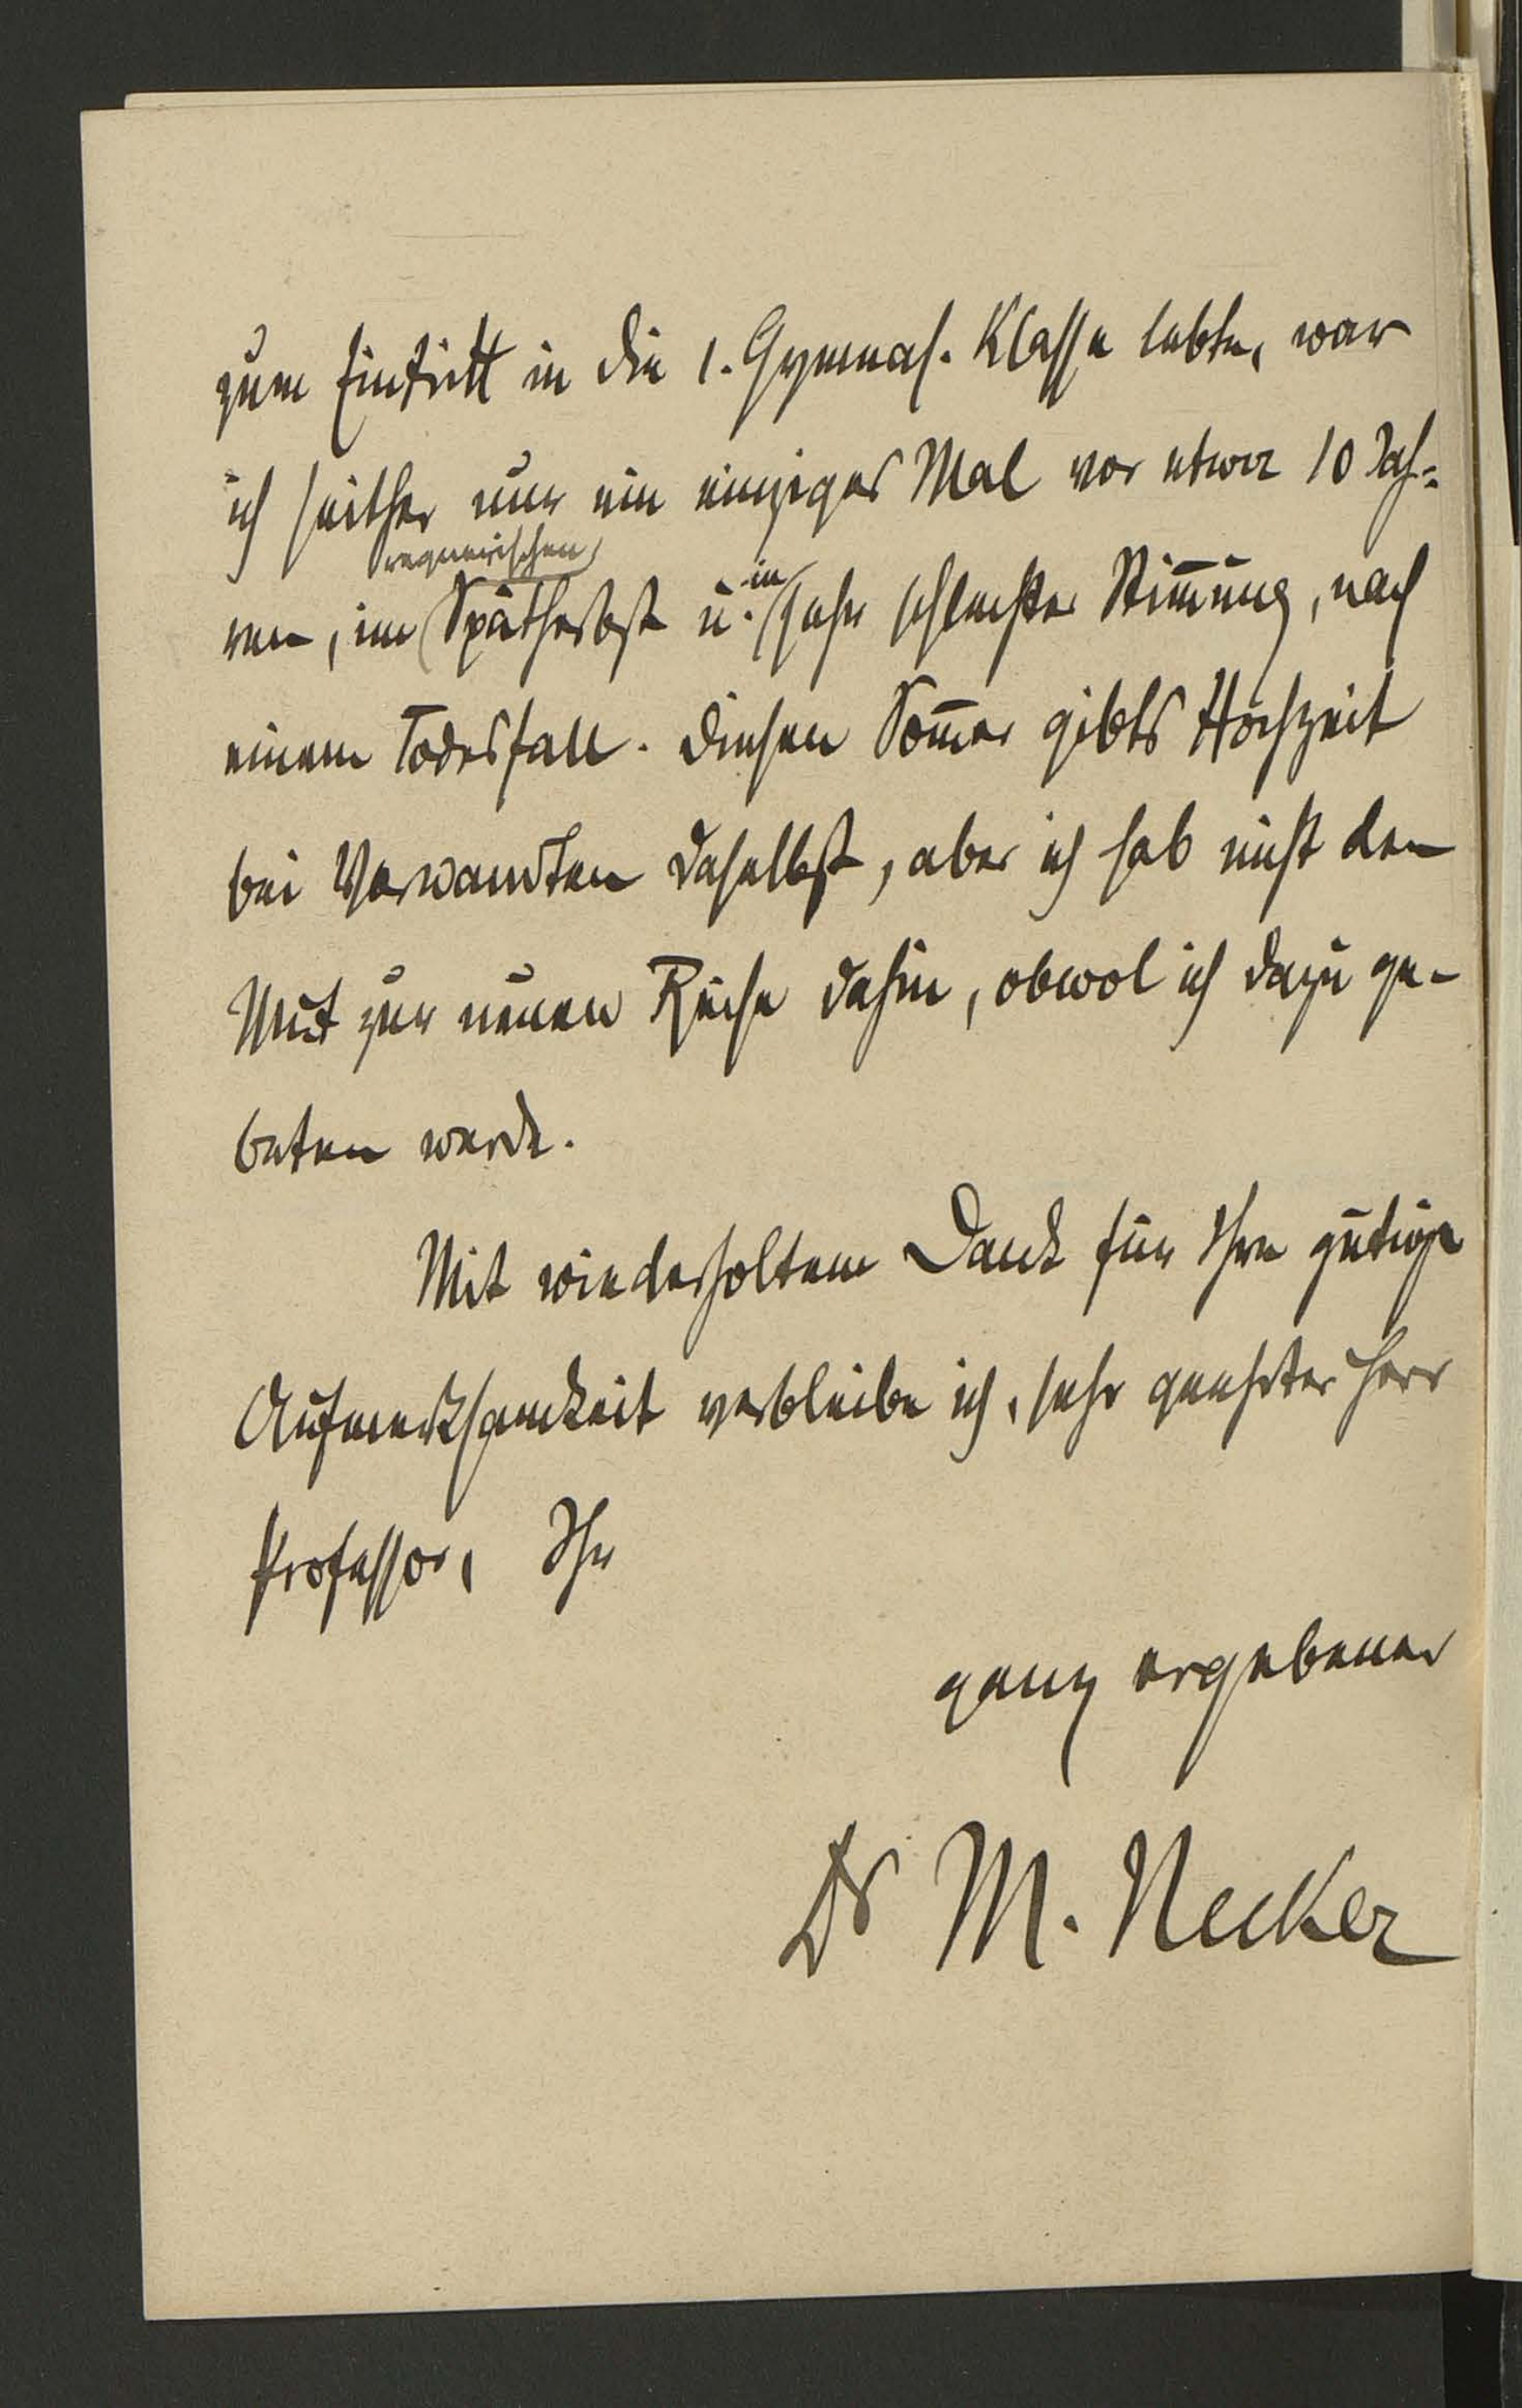 zum Eintritt in die 1. Gymnas. Klasse lebte, war
ich seither nur ein einziges Mal vor etwa 10 Jah-
regnerischen
ren, im Spätherbst u. in sehr schlechter Stim̄ung, nach
einem Todesfall. Diesen Som̄er gibts Hochzeit
bei Verwandten daselbst, aber ich hab nicht den
Mut zur neuen Reise dahin, obwol ich dazu ge-
beten werde.
Mit wiederholtem Dank für Ihre gütige
Aufmerksamkeit verbleibe ich, sehr geehrter Herr
Professor, Ihr
ganz ergebener
Dr M. Necker